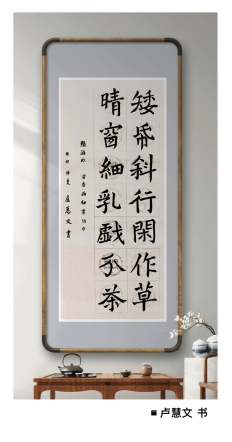 矮帋斜行閑作草
晴窗細乳戲分茶
陸游句
盧慧文書
■ 卢慧文 书